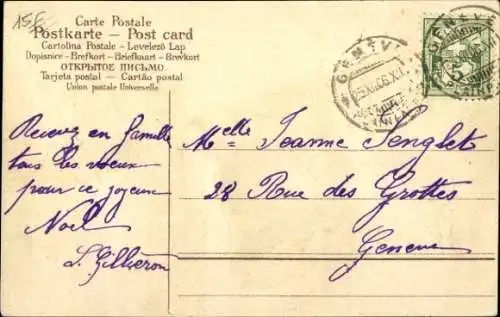 156
Carte Postale
Postkarte — Post card
Cartolina Postale – Levelező Lap
Dopisnice – Brefkort – Briefkaart – Brevkort
ОТКРЫТОЕ ПИСЬМО.
Tarjeta postal – Cartão postal
Union postale Universelle
GENÈVE
GENÈVE
5
Recevez en famille
tous les voeux
pour ce joyeux
Noël
S. Gilliéron
Melle Jeanne Senglet
28 Rue des Grottes
Genève